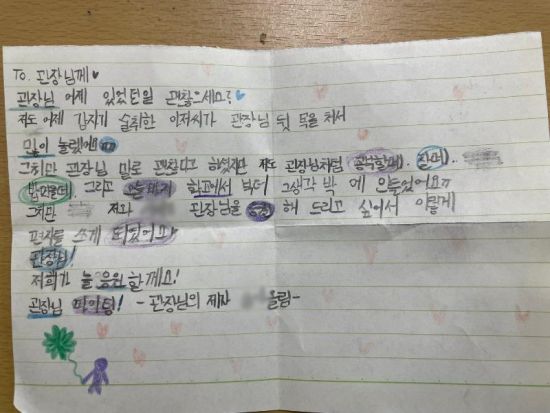 To. 관장님께♥
관장님 어제 있었던일 괜찮으세요?♥
저도 어제 갑자기 술취한 아저씨가 관장님 뒷 목을 쳐서
많이 놀랬어요ㅠㅠ
그치만 관장님 말로 괜찮다고 하셨지만 저도 관장님처럼 공부할때.. 잘때..
밥먹을때 그리고 오늘까지 학교에서 밖에 그생각 밖 에 안들었어요ㅠ
그치만 저와 관장님을 응원 해 드리고 싶어서 이렇게
편지를 쓰게 되었어요
관장님!
저희가 늘 응원할께요!
관장님 파이팅! -관장님의 제자 올림-